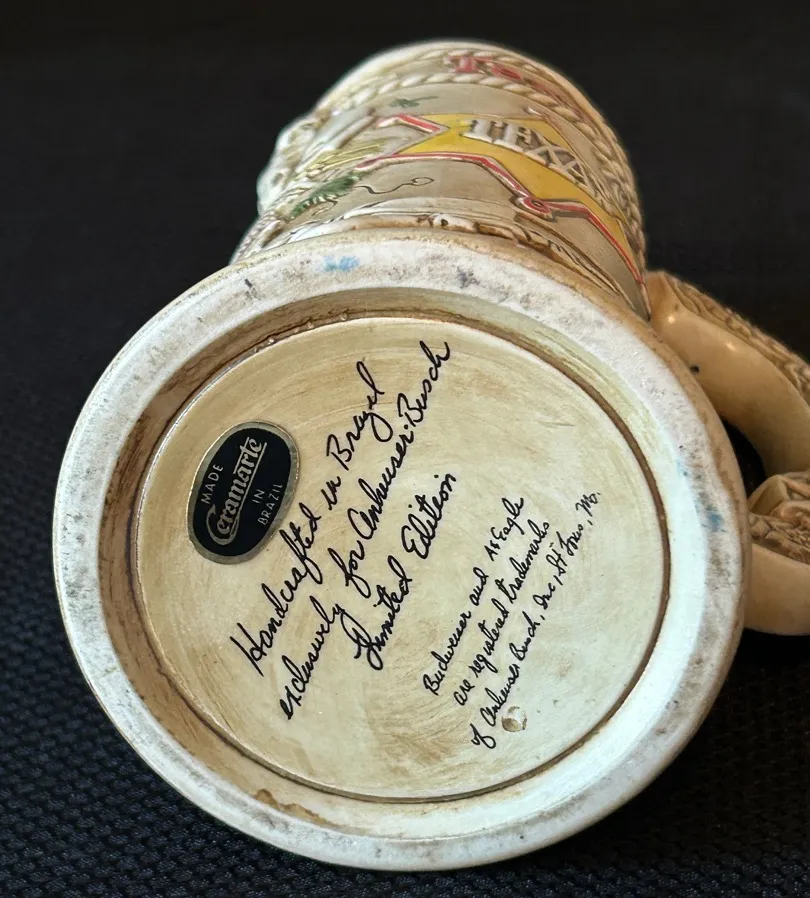 TEXAS
MADE
Ceramarte
IN
BRAZIL
Handcrafted in Brazil
exclusively for Anheuser-Busch
Limited Edition
Budweiser and A & Eagle
are registered trademarks
of Anheuser Busch, Inc, St Louis, Mo.